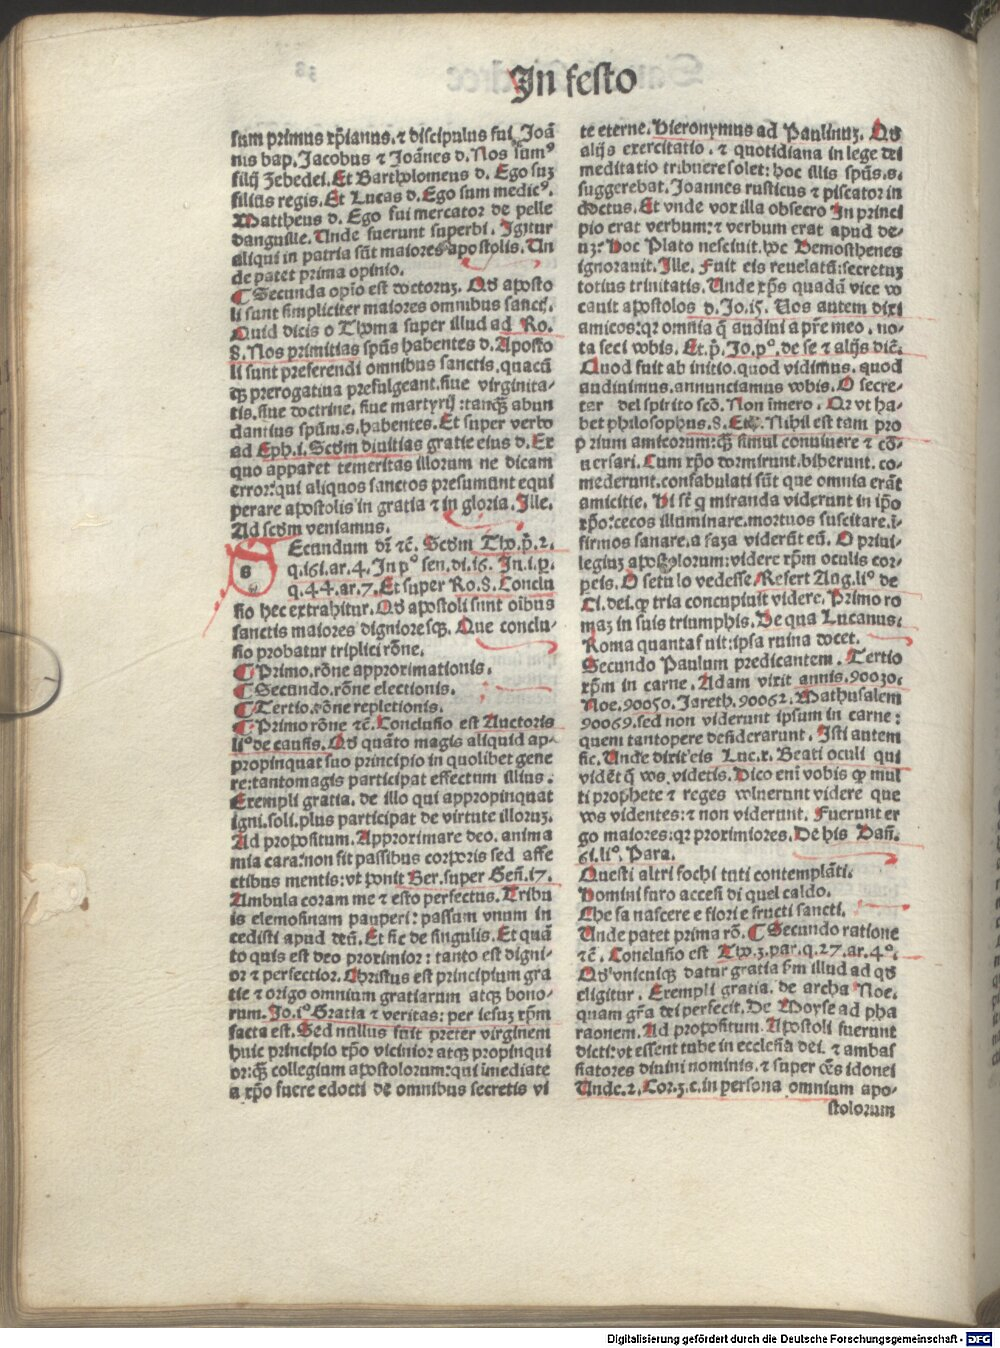 In festo
sum primus xp̄ianus. ⁊ discipulus fui Joā
nis bap. Jacobus ⁊ Joānes d. Nos sumꝰ
filij Zebedei. Et Bartholomeus d. Ego suꝫ
filius regis. Et Lucas d. Ego sum medicꝰ.
Mattheus d. Ego fui mercator de pelle
danguille. Unde fuerunt superbi. Igitur
aliqui in patria sūt maiores apostolis. Un
de patet prima opinio.
¶ Secunda opīo est doctoruꝫ. Qd̓ aposto
li sunt simpliciter maiores omnibus sanct.
Quid dicis o Thoma super illud ad Ro.
8. Nos primitias spūs habentes d. Aposto
li sunt preferendi omnibus sanctis. quacū
qꝫ prerogatiua prefulgeant. siue virginita-
tis. siue doctrine. siue martyrij: tanqꝫ abun
dantius spūm .s. habentes. Et super verbo
ad Eph. i. Scd̓m diuitias gratie eius d. Ex
quo apparet temeritas illorum ne dicam
error: qui aliquos sanctos presumunt equi
perare apostolis in gratia ⁊ in gloria. Ille.
Ad scd̓m veniamus.
Secundum dr̄ ⁊c̄. Scd̓m Tho. p̄. 2.
q. 161. ar. 4. In pº sen. di. 16. In. i. p.
q. 44. ar. 7. Et super Ro. 8. Conclu
sio hec extrahitur. Qd̓ apostoli sunt oībus
sanctis maiores digniores qꝫ. Que conclu-
sio probatur triplici rōne.
¶ Primo. rōne approximationis.
¶ Secundo. rōne electionis.
¶ Tertio. rōne repletionis.
¶ Primo rōne ⁊c̄. Conclusio est Auctoris
liº de causis. Qd̓ quāto magis aliquid ap-
propinquat suo principio in quolibet gene
re: tantomagis participat effectum illius.
Exempli gratia. de illo qui appropinquat
igni. soli. plus participat de virtute illoruꝫ.
Ad propositum. Approximare deo. anima
mia cara: non fit passibus corporis sed affe
ctibus mentis: vt ponit Ber. super Gen̄. 17.
Ambula coram me ⁊ esto perfectus. Tribu
is elemosinam pauperi: passum vnum in
cedisti apud deū. Et sic de singulis. Et quā
to quis est deo proximior: tanto est digni-
or ⁊ perfectior. Christus est principium gra
tie ⁊ origo omnium gratiarum atqꝫ bono-
rum. Jo. iº Gratia ⁊ veritas: per iesuꝫ xp̄m
facta est. Sed nullus fuit preter virginem
huic principio xp̄o vicinior atqꝫ propinqui
or: qꝫ collegium apostolorum: qui īmediate
a xp̄o fuere edocti de omnibus secretis vi
te eterne. Hieronymus ad Paulinuꝫ. Qd̓
alijs exercitatio. ⁊ quotidiana in lege dei
meditatio tribuere solet: hoc illis spūs .s.
suggerebat. Joannes rusticus ⁊ piscator in
doctus. Et vnde vox illa obsecro In princi
pio erat verbum: ⁊ verbum erat apud de-
uꝫ: Hoc Plato nesciuit. hoc Demosthenes
ignorauit. Ille. Fuit eis reuelatū: secretuꝫ
totius trinitatis. Unde xp̄s quadā vice vo
cauit apostolos d. Jo. 15. Vos autem dixi
amicos: qꝛ omnia q̄ audiui a pr̄e meo. no-
ta feci vobis. Et. p̄. Jo. pº. de se ⁊ alijs dic̄.
Quod fuit ab initio. quod vidimus. quod
audiuimus. annunciamus vobis. O secre-
ter del spirito scō. Non īmero. Qꝛ vt ha-
bet philosophus. 8. Nihil est tam pro
prium amicorum: qꝫ simul conuiuere ⁊ cō-
uersari. Cum xp̄o dormirunt. biberunt. co-
mederunt. confabulati sūt que omnia erāt
amicitie. Hi st̄ q miranda viderunt in ip̄o
xp̄o: cecos illuminare. mortuos suscitare. ī-
firmos sanare. a faza viderūt eū. O priui-
legiuꝫ apostolorum: videre xp̄m oculis cor-
peis. O se tu lo vedesse. Refert Aug. liº. de
Ci. dei. ꝙ tria concupiuit videre. Primo ro
maꝫ in suis triumphis. De qua Lucanus.
Roma quanta fuit: ipsa ruina docet.
Secundo Paulum predicantem. Tertio
xp̄m in carne. Adam vixit annis. 90030.
Noe. 90050. Jareth. 90062. Mathusalem
90069. sed non viderunt ipsum in carne:
quem tantopere desiderarunt. Isti autem
sic. Unde dixit eis Luc. x. Beati oculi qui
vidēt q̄ vos videtis. Dico eni vobis ꝙ mul
ti prophete ⁊ reges voluerunt videre que
vos videntes: ⁊ non viderunt. Fuerunt er
go maiores: qꝛ proximiores. De his Dan̄.
61. liº. Para.
Questi altri fochi tuti contemplāti.
Homini furo accesi di quel caldo.
Che fa nascere e fiori e fructi sancti.
Unde patet prima rō. ¶ Secundo ratione
⁊c̄. Conclusio est Tho. 3. par. q. 27. ar. 4º.
Qd̓ vnicuiqꝫ datur gratia s̄m illud ad qd̓
eligitur. Exempli gratia. de archa Noe.
quam gr̄a dei perfecit. De Moyse ad pha
raonem. Ad propositum. Apostoli fuerunt
dicti: vt essent tube in ecclesia dei. ⁊ ambas
siatores diuini nominis. ⁊ super oēs idonei
Unde. 2. Cor. 3. c. in persona omnium apo-
stolorum
Digitalisierung gefördert durch die Deutsche Forschungsgemeinschaft - DFG